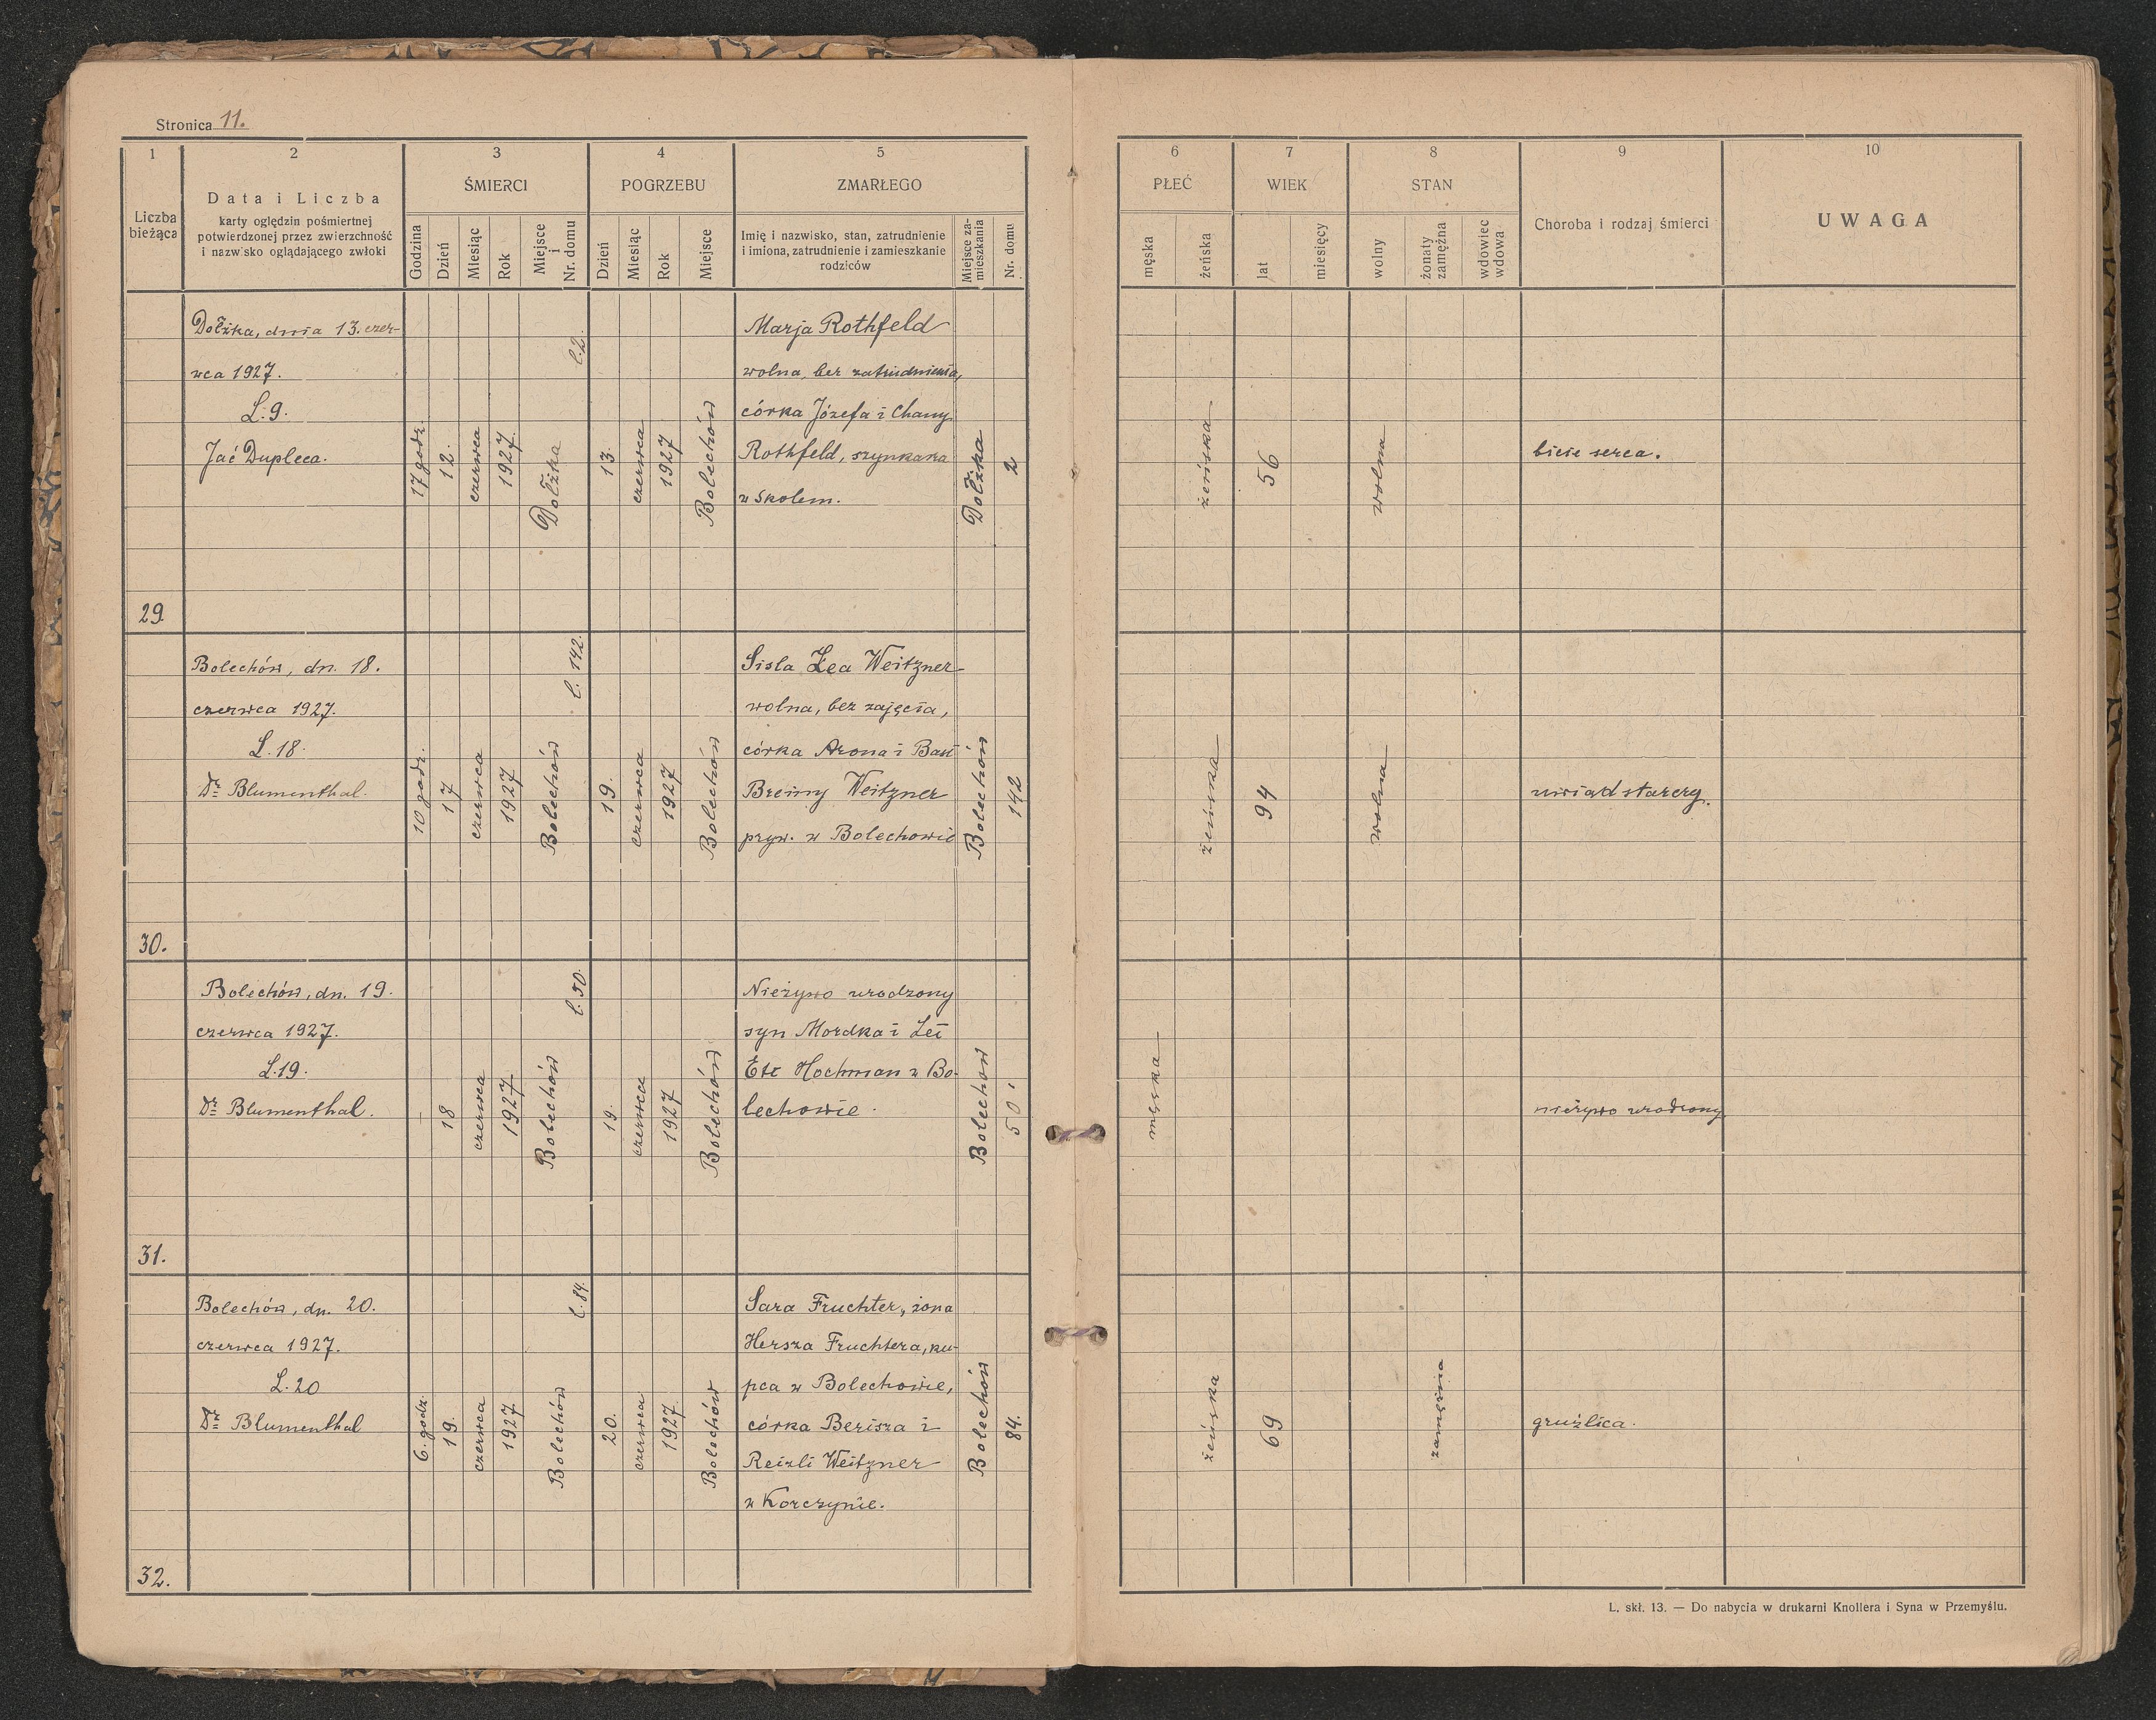 Stronica 11.
1
2
3
4
5
Liczba
bieżąca
Data i Liczba
karty oględzin pośmiertnej
potwierdzonej przez zwierzchność
i nazwisko oglądającego zwłoki
ŚMIERCI
Godzina
Dzień
Miesiąc
Rok
Miejsce
i
Nr. domu
POGRZEBU
Dzień
Miesiąc
Rok
Miejsce
ZMARŁEGO
Imię i nazwisko, stan, zatrudnienie
i imiona, zatrudnienie i zamieszkanie
rodziców
Miejsce za-
mieszkania
Nr. domu
6
7
8
9
10
PŁEĆ
męska
żeńska
WIEK
lat
miesięcy
STAN
wolny
żonaty
zamężna
wdowiec
wdowa
Choroba i rodzaj śmierci
UWAGA
29
Dołżka, dnia 13. czer-
wca 1927.
L. 9.
Jać Dupleca.
17 godz.
12.
czerwca
1927.
Dołżka
l. 2.
13.
czerwca
1927
Bolechów
Marja Rothfeld
wolna, bez zatrudnienia,
córka Józefa i Chany
Rothfeld, szynkarza
w Skolem.
Dołżka
2
żeńska
56
wolna
bicie serca.
30.
Bolechów, dn. 18.
czerwca 1927.
L. 18.
Dr Blumenthal.
10 godz.
17
czerwca
1927
Bolechów
l. 142.
19.
czerwca
1927
Bolechów
Sisla Lea Weitzner
wolna, bez zajęcia,
córka Arona i Basi
Breiny Weitzner
pryw. w Bolechowie
Bolechów
142
żeńska
94
wolna
uwiąd starczy.
31.
Bolechów, dn. 19.
czerwca 1927.
L. 19.
Dr Blumenthal.
–
18
czerwca
1927.
Bolechów
l. 50.
19.
czerwca
1927
Bolechów
Nieżywo urodzony
syn Mordka i Lei
Ete Hochman w Bo-
lechowie.
Bolechów
50
męska
nieżywo urodzony
32.
Bolechów, dn. 20.
czerwca 1927.
L. 20
Dr Blumenthal
6. godz.
19.
czerwca
1927.
Bolechów
l. 84.
20.
czerwca
1927.
Bolechów
Sara Fruchter, żona
Hersza Fruchtera, ku-
pca w Bolechowie,
córka Berisza i
Reizli Weitzner
w Korczynie.
Bolechów
84.
żeńska
69
zamężna
gruźlica.
L. skł. 13. — Do nabycia w drukarni Knollera i Syna w Przemyślu.